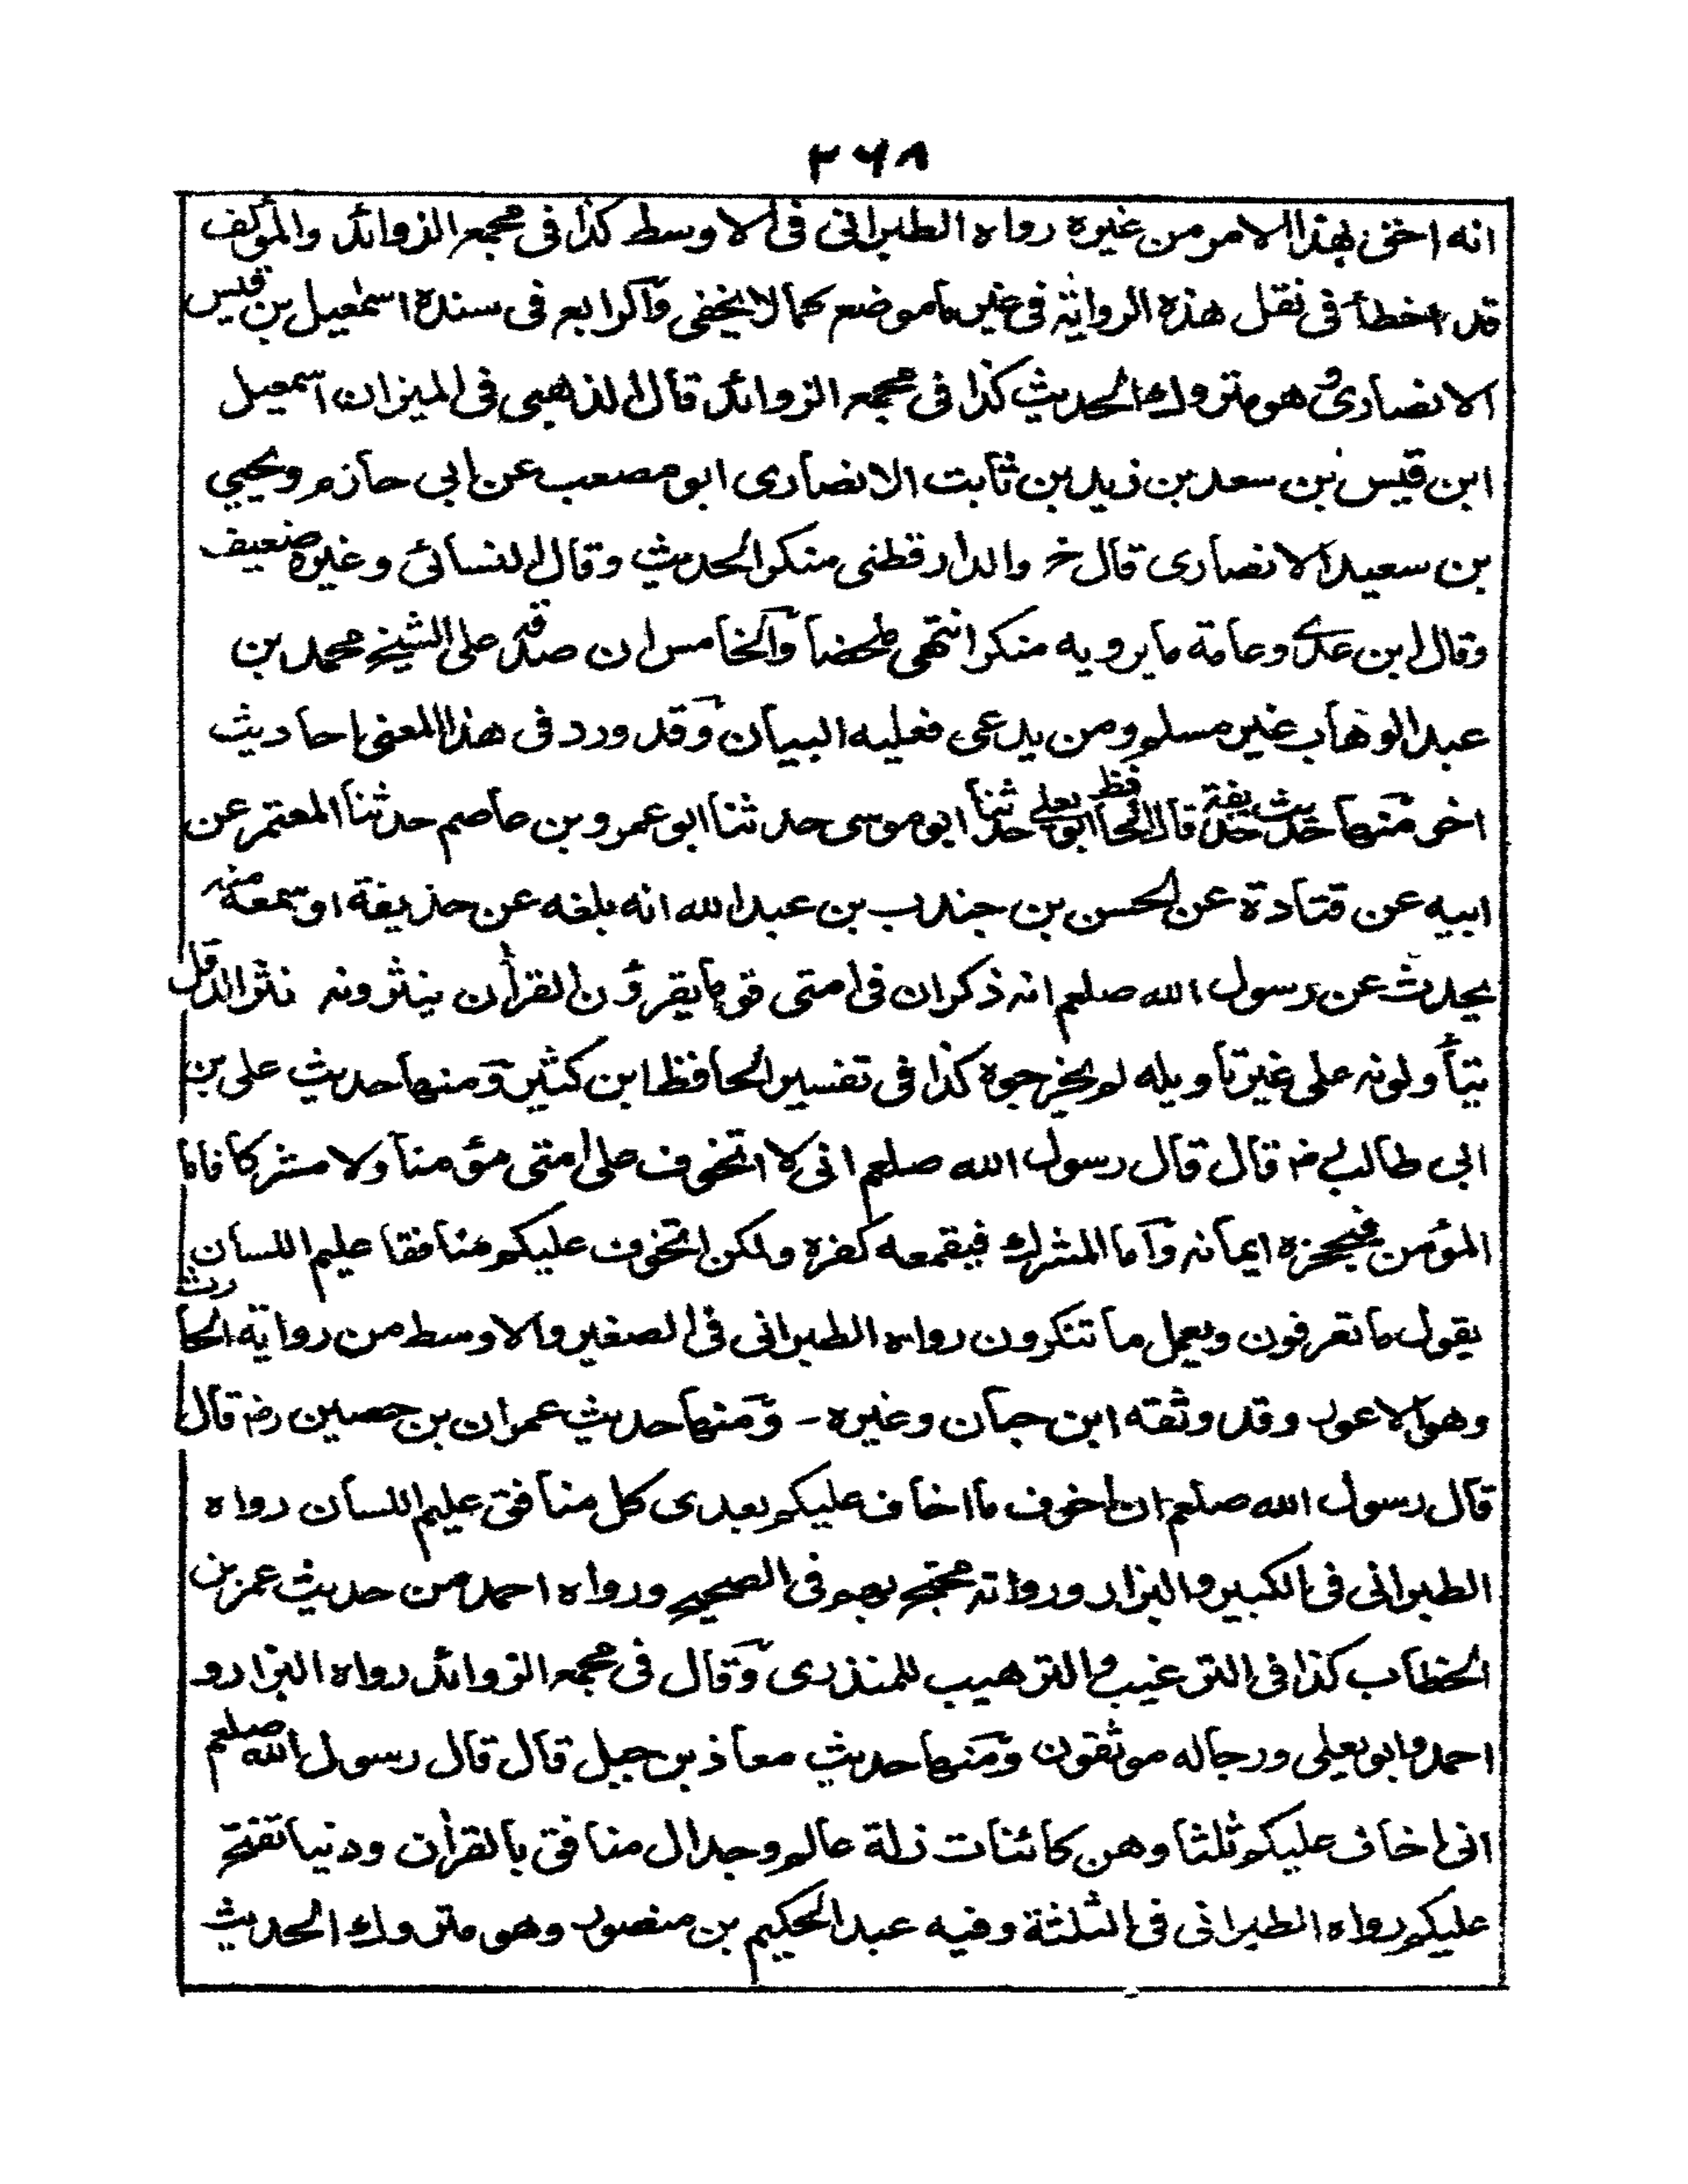 ٣٦٨
انه احق بهذا الامر من غيره رواه الطبرانى فى الاوسط كذا فى مجمع الزوائد والمؤلف
قد اخطأ فى نقل هذه الرواية فى غير ما موضع كما لا يخفى والرابع فى سنده اسمٰعيل بن قيس
الانصارى وهو متروك الحديث كذا فى مجمع الزوائد قال الذهبى فى الميزان اسمعيل
ابن قيس بن سعد بن زيد بن ثابت الانصارى ابو مصعب عن ابى حازم ويحيى
بن سعيد الانصارى قال خ والدارقطنى منكر الحديث وقال النسائى وغيره ضعيف
وقال ابن عدى وعامة ما يرويه منكر انتهى ملخصا والخامس ان صدقه على الشيخ محمد بن
عبد الوهاب غير مسلم ومن يدعى فعليه البيان وقد ورد فى هذا المعنى احاديث
اخر منها حديث حذيفة قال الحافظ ابو يعلى حدثنا ابو موسى حدثنا ابو عمرو بن عاصم حدثنا المعتمر عن
ابيه عن قتادة عن الحسن بن جندب بن عبد الله انه بلغه عن حذيفة او سمعه منه
يحدث عن رسول الله صلعم انه ذكر ان فى امتى قوما يقرؤن القرأن ينثرونه نثر الدقل
يتأولونه على غير تأويله لم يخرجوه كذا فى تفسير الحافظ ابن كثير ومنها حديث على بن
ابى طالب رض قال قال رسول الله صلعم انى لا اتخوف على امتى مؤمنا ولا مشركا فاما
المؤمن فيحجزه ايمانه واما المشرك فيقمعه كفره ولكن اتخوف عليكم منافقا عليم اللسان
يقول ما تعرفون ويعمل ما تنكرون رواه الطبرانى فى الصغير والاوسط من رواية الحارث
وهو الاعور وقد وثقه ابن حبان وغيره - ومنها حديث عمران بن حصين رض قال
قال رسول الله صلعم ان اخوف ما اخاف عليكم بعدى كل منافق عليم اللسان رواه
الطبرانى فى الكبير والبزار ورواته محتج بهم فى الصحيح ورواه احمد من حديث عمر بن
الخطاب كذا فى الترغيب والترهيب للمنذرى وقال فى مجمع الزوائد رواه البزار و
احمد وابو يعلى ورجاله موثقون ومنها حديث معاذ بن جبل قال قال رسول الله صلعم
انى اخاف عليكم ثلثا وهن كائنات زلة عالم وجدال منافق بالقرأن ودنيا تفتح
عليكم رواه الطبرانى فى الثلثة وفيه عبد الحكيم بن منصور وهو متروك الحديث